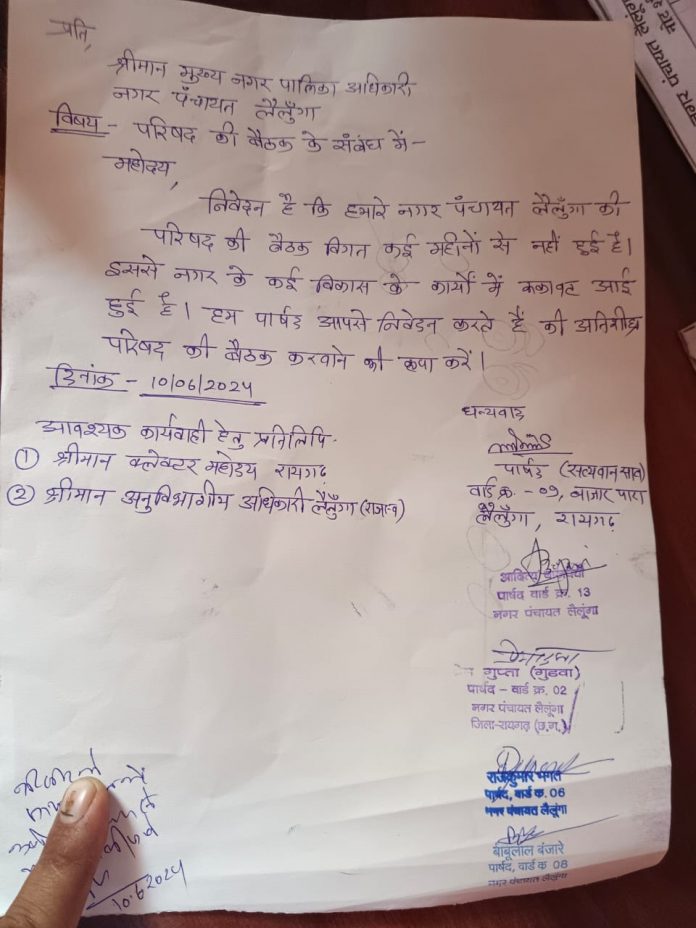 प्रति,
श्रीमान मुख्य नगर पालिका अधिकारी
नगर पंचायत लैलूँगा
विषय - परिषद की बैठक के संबंध में -
महोदय,
निवेदन है कि हमारे नगर पंचायत लैलूँगा की
परिषद की बैठक विगत कई महीनों से नहीं हुई है।
इससे नगर के कई विकास के कार्यो में रूकावट आई
हुई है। हम पार्षद आपसे निवेदन करते हैं की अतिशीघ्र
परिषद की बैठक करवाने की कृपा करें।
दिनांक - 10/06/2024
धन्यवाद
आवश्यक कार्यवाही हेतु प्रतिलिपि -
① श्रीमान क्लेक्टर महोदय रायगढ़
पार्षद (सत्यवान साव)
② श्रीमान अनुविभागीय अधिकारी लैलूँगा
वार्ड क्र. - 07, बाजार पारा
लैलूँगा, रायगढ़
पार्षद वार्ड क्र. 13
नगर पंचायत लैलूंगा
गुप्ता (गुडवा)
पार्षद - वार्ड क्र. 02
नगर पंचायत लैलूंगा
जिला-रायगढ़ (छ.ग.)
राजकुमार भगत
पार्षद, वार्ड क. 06
नगर पंचायत लैलूंगा
बाबूलाल बंजारे
पार्षद, वार्ड क 08
नगर पंचायत लैलूंगा
10.6.2024